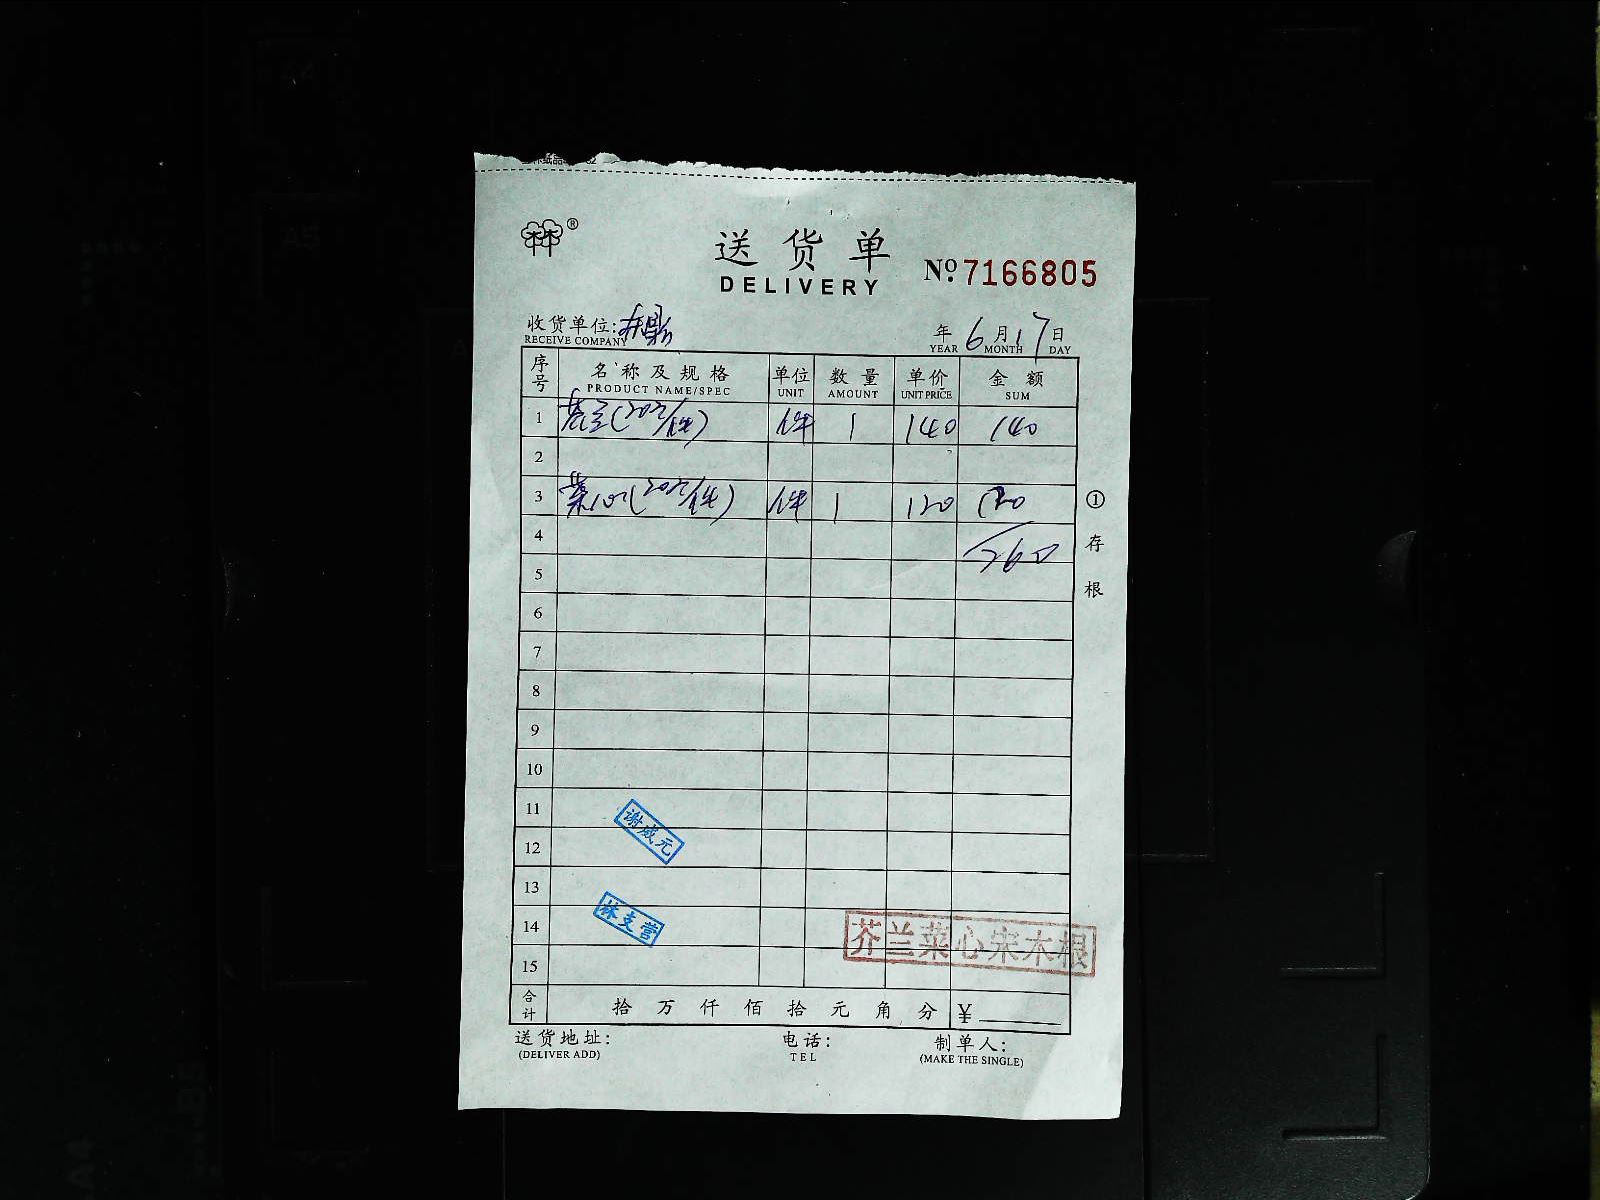 ®
送货单
DELIVERY
№ 7166805
收货单位:
RECEIVE COMPANY
年 6月17日
YEAR MONTH DAY
序号 名称及规格 单位 数量 单价 金额
PRODUCT NAME/SPEC UNIT AMOUNT UNIT PRICE SUM
1 件 1 140 140
2
3 菜心(20 /件) 件 1 120 120
4 260
5
6
7
8
9
10
11
12
13
14
15
谢成元
林支营
芥兰菜心宋木根
合计 拾万仟佰拾元角分 ¥
送货地址: 电话: 制单人:
(DELIVER ADD) TEL (MAKE THE SINGLE)
①存根